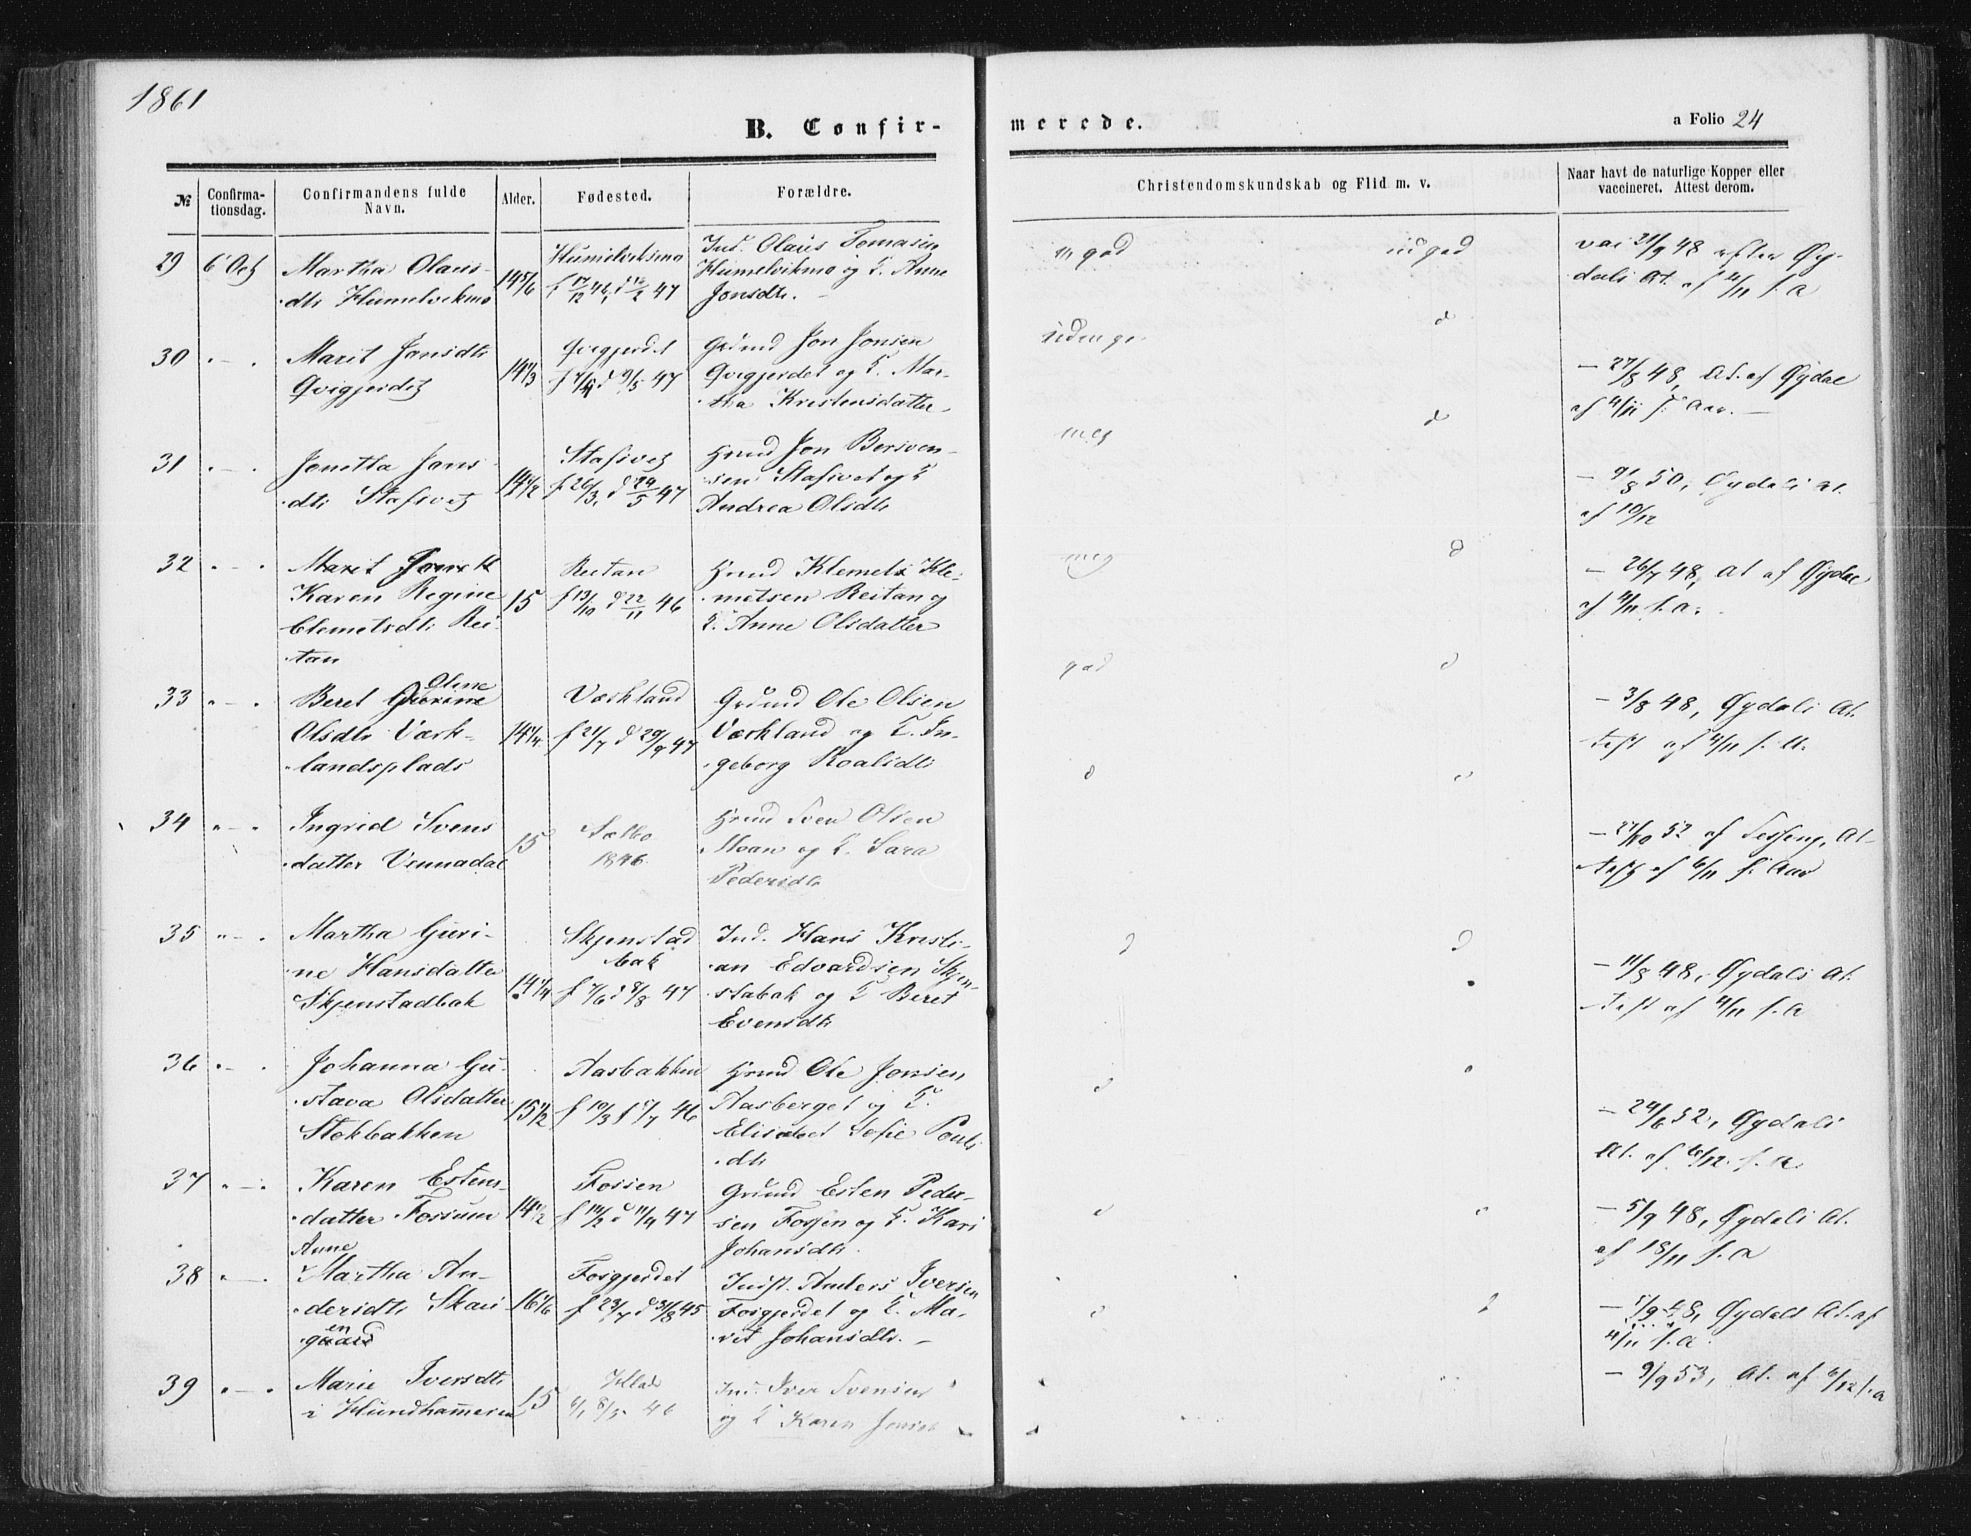 1861
B. Confir-
merede.
a Folio 24
№
Confirma-
tionsdag.
Confirmandens fulde
Navn.
Alder.
Fødested.
Forældre.
Christendomskundskab og Flid m. v.
Naar havt de naturlige Kopper eller
vaccineret. Attest derom.
29
6 Oct
Martha Olaus-
dtr Humelvikmo
14 5/6
Humelviksmo
f 17/12 46, d 2 47
Ind. Olaus Tomasen
Humelvikmo og H. Anne
Jonsdtr.
m god
m god
vac 21/9 48 efter Øy-
dals At. af 4/11 s. a
30
Marit Jonsdtr
Qvigjerdet
14 1/3
Qvigjerdet
d 9/5 47
Grund Jon Jonsen
Qvigjerdet og H. Mar-
tha Kristensdatter
udmge
d
27/8 48, At. af Øydal
af 4/11 s. Aar.
31
Jonetta Jons
dtr Stafsvet
14 1/2
Stafsvet
f 26/3, d 24/5 47
Hmd Jon Bersven-
sen Stafsvet og H
Andrea Olsdtr
meg
d
9/8 50, Øydals At.
af 10/12
32
Marit Jonsdtr
Karen Regine
Clemetsdtr Rei-
tan
15
Reitan
f 19/10 d 22/11 46
Hmd Klemet Kle-
metsen Reitan og
H. Anne Olsdatter
meg
d
26/7 48, At af Øydal
af 4/11 s. a.
33
Beret Oline
Olsdtr Værk-
landsplads
14 1/4
Værkland
f 21/7 d 29/9 47
Grund Ole Olsen
Værkland og H. In-
geborg Roalsdtr
god
d
3/8 48, Øydals At-
test af 4/11 s. A.
34
Ingrid Svens
datter Vennadal
15
Selbo
1846
Hmd Sven Olsen
Moan og H. Sara
Pedersdtr
d
27/10 52 af Jesseng, At-
test af 6/11 s. Aar
35
Martha Guri-
ne Hansdatter
Skjenstadbak
14 1/4
Skjenstad
bak
f 7/6 d 8/8 47
Ind. Hans Kristi-
an Edvardsen Skjen-
stabak og H Beret
Evensdtr
d
d
11/8 48, Øydals At-
test af 4/11 s. a
36
Johanna Gu-
stava Olsdatter
Stokbakken
15 1/2
Aasbakken
f 10/3 5/7 46
Hmd Ole Jonsen
Aasberget og H.
Elisabet Sofie Pouls
dtr
d
24/6 52, Øydals
At. af 6/12. s. a.
37
Karen Estens-
datter Fossum
14 1/2
Fossen
f 14/2 d 11/4 47
Grund Esten Peder-
sen Fossen og H. Kari
Johansdtr.
5/9 48, Øydals At.
af 18/11 s. a
38
Anne
Martha An-
dersdtr Skars-
en
16 1/6
Fosgjerdet
f 23/7 d 31/8 45
Indst. Anders Iversen
Fosgjerdet og H. Ma-
rit Johansdtr.
d
1/9 48, Øydals At. af
4/11 s. a.
39
Marie Iversdtr
i Hundhameren
15
46
Ind. Iver Svensen
og H Karen Jonsdtr
9/9 53, At. af 6/12 s. a